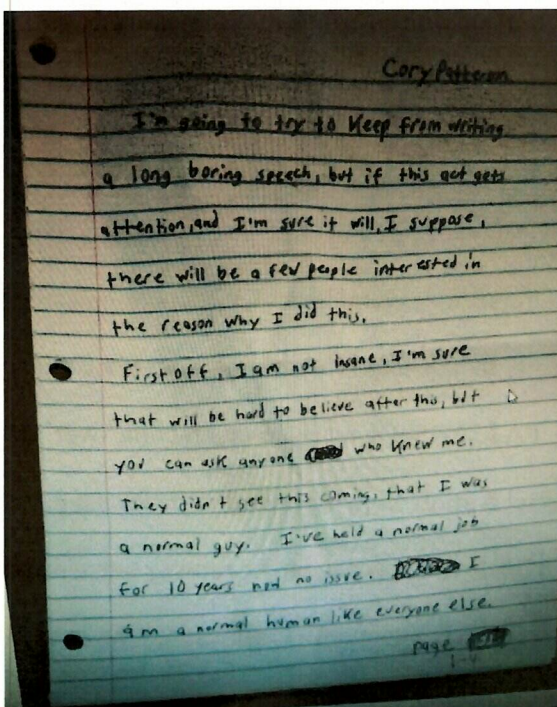 Cory Patterson
I'm going to try to Keep from writing
a long boring speech, but if this act gets
attention, and I'm sure it will, I suppose,
there will be a few people interested in
the reason why I did this.
First off, I am not insane, I'm sure
that will be hard to believe after this, but
you can ask anyone who knew me.
They didn't see this coming, that I was
a normal guy. I've held a normal job
for 10 years no issue. I
am a normal human like everyone else.
page
1-4